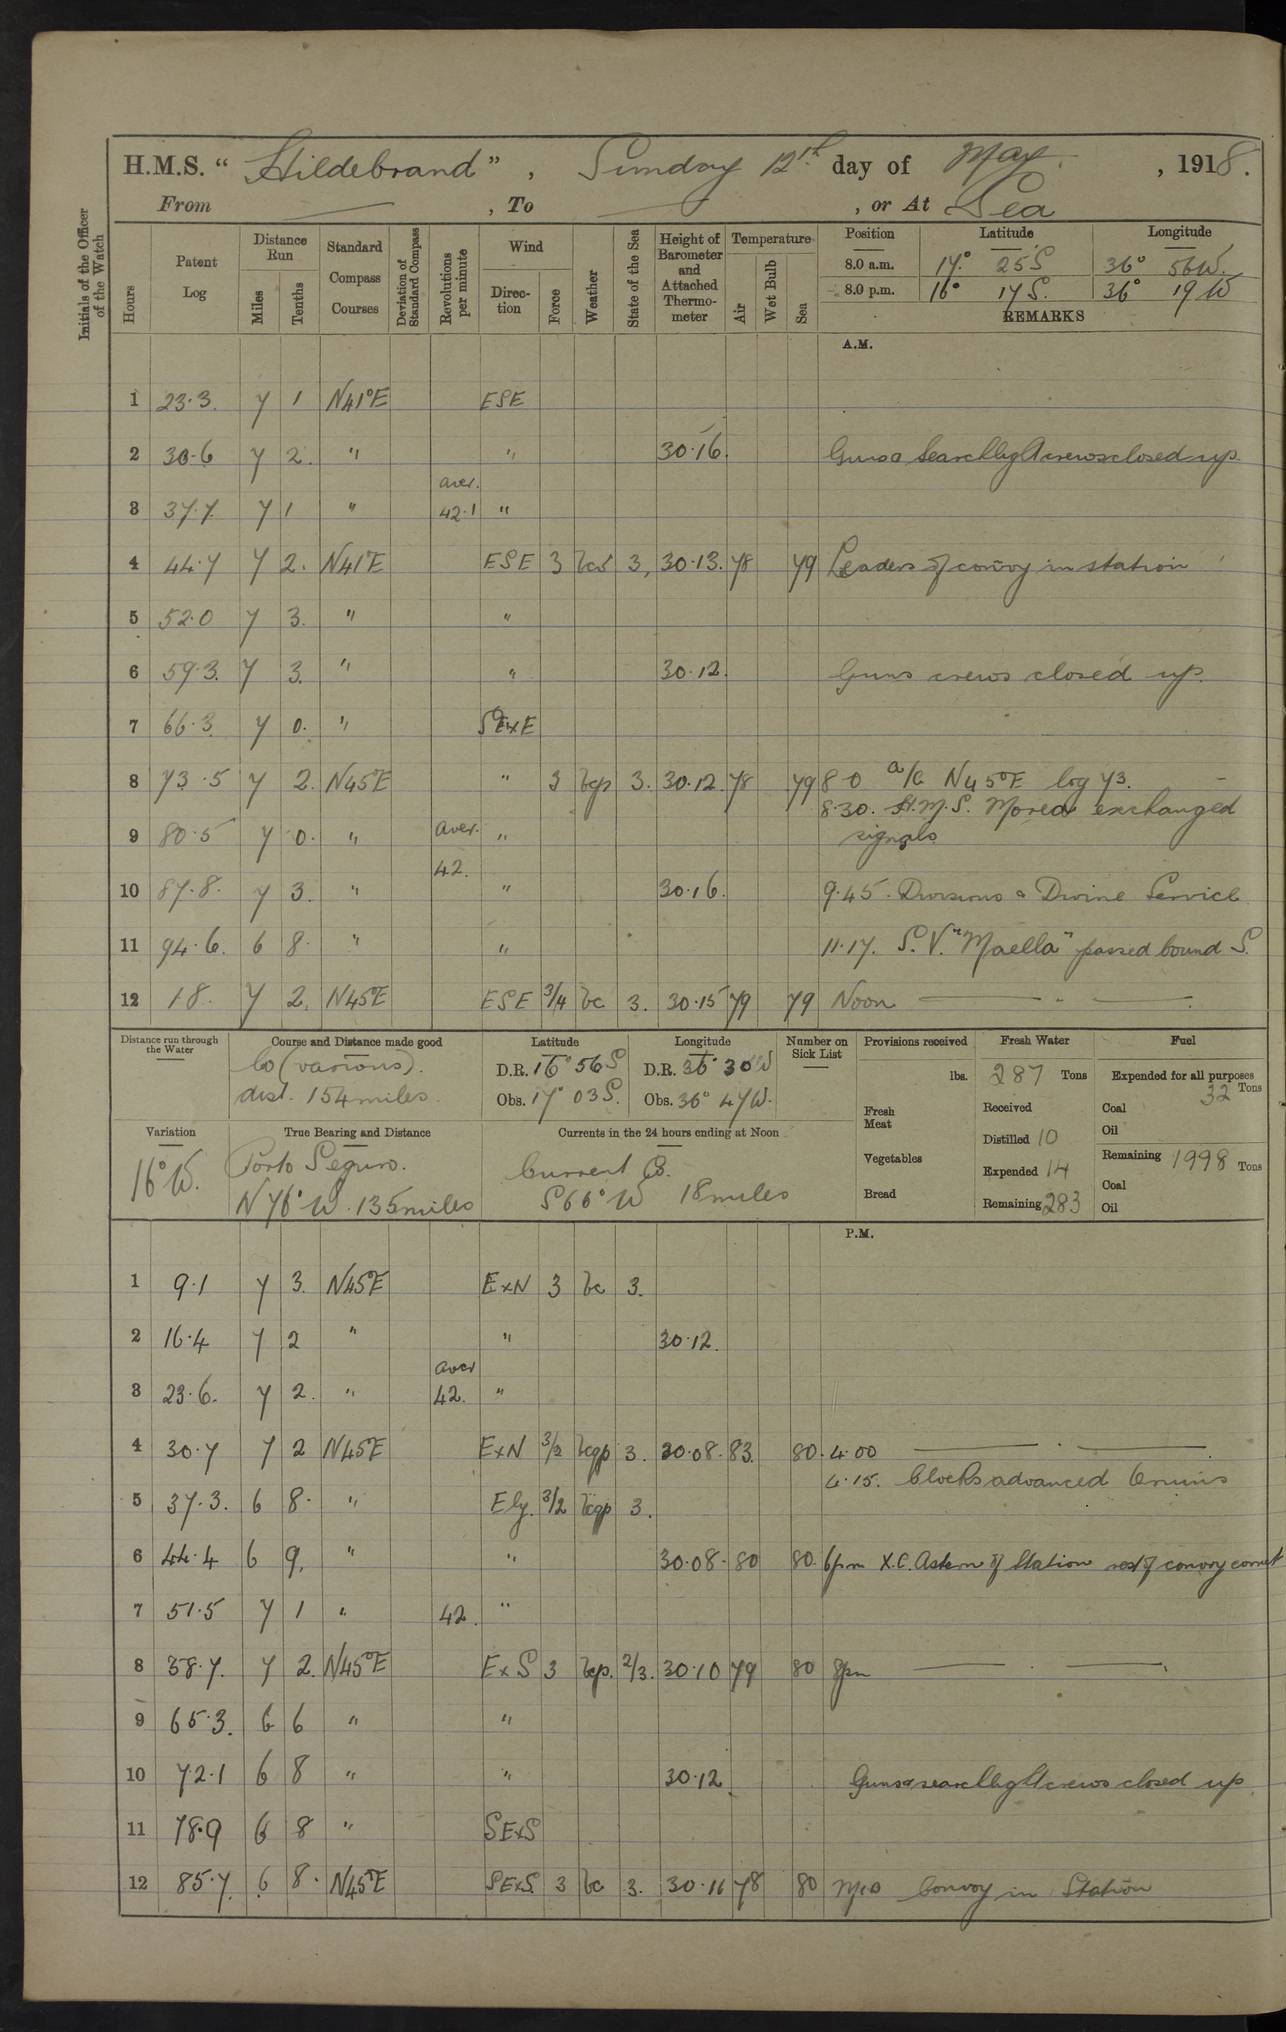 H.M.S. “ Hildebrand ” , Sunday 12th day of May , 1918.
From — , To — , or At Sea
Initials of the Officer of the Watch
Hours
Patent Log
Distance Run
Miles
Tenths
Standard Compass Courses
Deviation of Standard Compass
Revolutions per minute
Wind
Direction
Force
Weather
State of the Sea
Height of Barometer and Attached Thermometer
Temperature
Air
Wet Bulb
Sea
Position Latitude Longitude
8.0 a.m. 17° 25 S 36° 56 W.
8.0 p.m. 16° 17 S. 36° 19 W
REMARKS
A.M.
1 23.3. 7 1 N41°E ESE
2 30.6 7 2. " " 30.16. Guns & Searchlight crews closed up.
aver.
3 37.7. 7 1 " 42.1 "
4 44.7 7 2. N41°E ESE 3 3, 30.13. 78 79 Leaders of convoy in station
5 52.0 7 3. " "
6 59.3. 7 3. " " 30.12. Guns crews closed up.
7 66.3 7 0. " SExE
8 73.5 7 2. N45°E " 3 bcp 3. 30.12 78 79 8.0 a/c N45°E log 73.
8.30. H.M.S. Morea exchanged
9 80.5 7 0. " aver. " signals
42.
10 87.8. 7 3. " " 30.16. 9.45. Divisions & Divine Service
11 94.6. 6 8. " " 11.17. S.V. "Maella" passed bound S.
12 1.8. 7 2. N45°E ESE 3/4 bc 3. 30.15 79 79 Noon — " —
Distance run through the Water
Course and Distance made good
Co (various).
dist. 154 miles.
Latitude
D.R. 16° 56 S
Obs. 17° 03 S.
Longitude
D.R. 36° 30 W
Obs. 36° 47 W.
Number on Sick List
Provisions received
lbs.
Fresh Meat
Vegetables
Bread
Fresh Water
287 Tons
Received
Distilled 10
Expended 14
Remaining 283
Fuel
Expended for all purposes
32 Tons
Coal
Oil
Remaining 1998 Tons
Coal
Oil
Variation
16° W.
True Bearing and Distance
Porto Seguro.
N 76° W. 135 miles
Currents in the 24 hours ending at Noon
Current Co.
S66° W 18 miles
P.M.
1 9.1 7 3. N45°E ExN 3 bc 3.
2 16.4 7 2 " " 30.12.
aver
3 23.6. 7 2. " 42. "
4 30.7 7 2 N45°E ExN 3/2 bcgp 3. 30.08. 83. 80. 4.00 — . —
4.15. Clocks advanced 6 mins
5 37.3. 6 8. " Ely. 3/2 bcgp 3.
6 44.4 6 9. " " 30.08. 80 80. 6pm X.C. Astern of Station rest of convoy correct
7 51.5 7 1 " 42. "
8 58.7. 7 2. N45°E ExS 3 bcp. 2/3. 30.10 79 80 8pm — . —
9 65.3. 6 6 " "
10 72.1 6 8 " " 30.12 Guns & searchlight crews closed up
11 78.9 6 8 " SExS
12 85.7. 6 8. N45°E SExS. 3 bc 3. 30.11 78 80 Convoy in Station